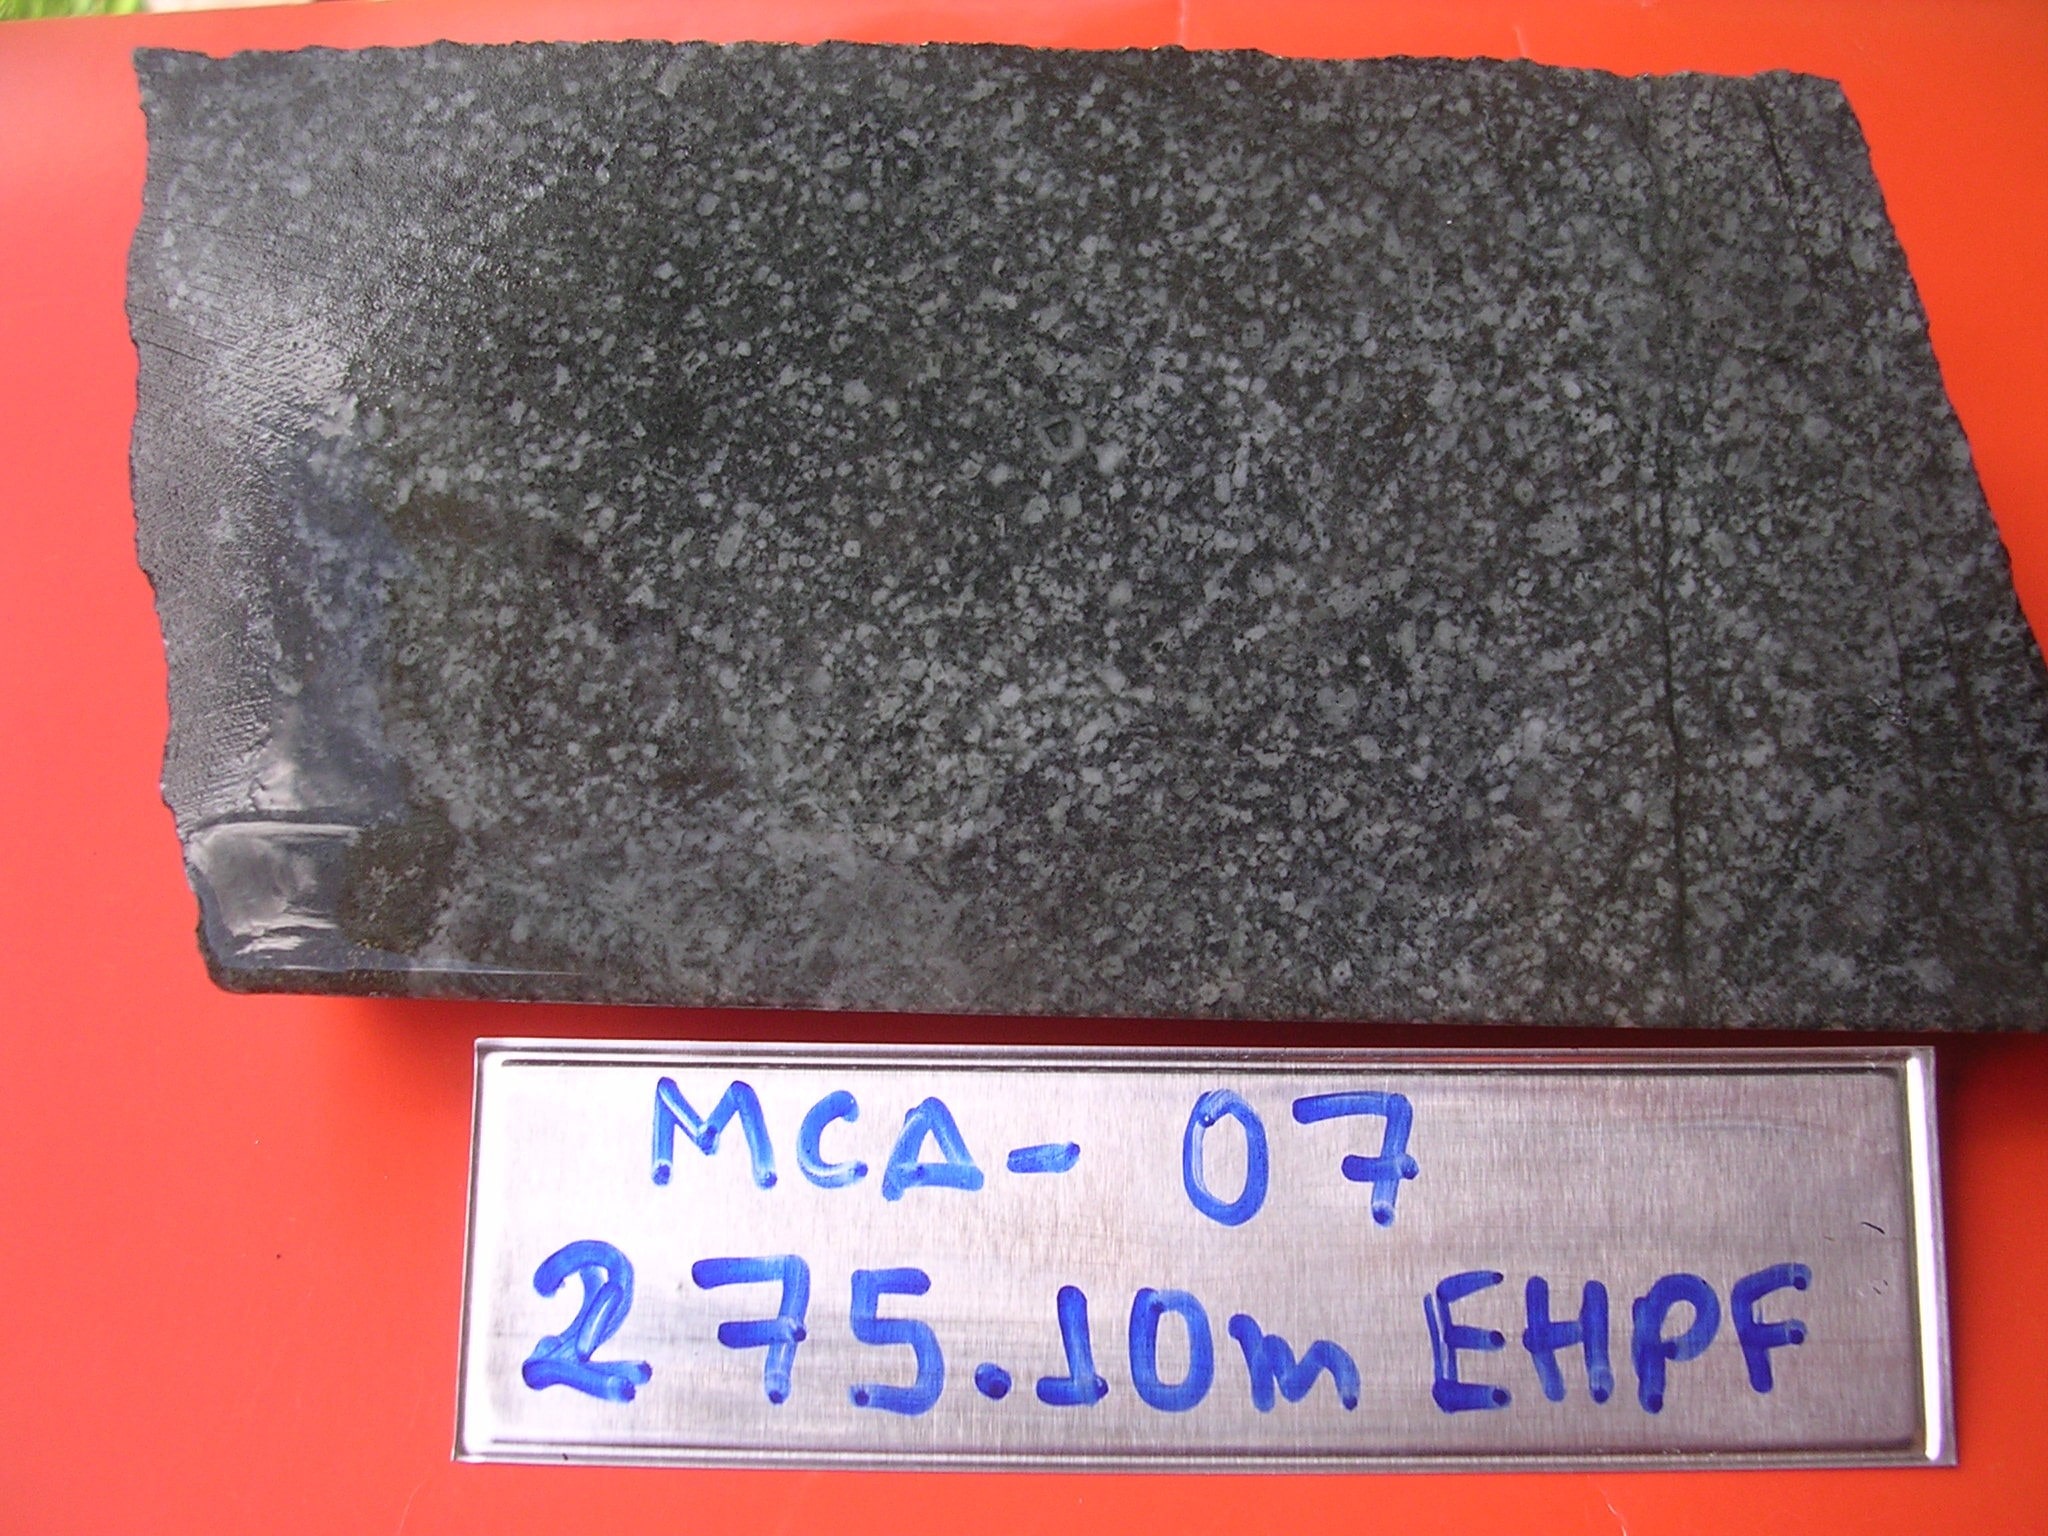 MCA- 07
275.10m EHPF